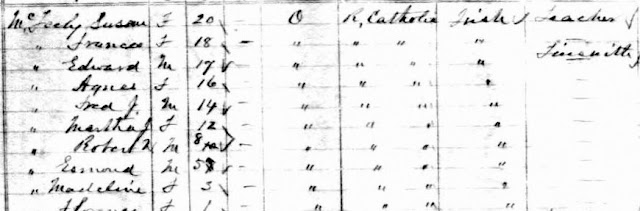 Susan F 20 O R. Catholic Irish Teacher
" Frances F 18 - " " " " Tinsmith
" Edward M 17 " " " "
" Agnes F 16 " " " "
" Fred J. M 14 - " " " "
" Martha J F 12 " " " "
" Robert M 8 - " " " "
" Esmond M 5 " " " "
" Madeline F 3 - " " " "
F 1 " " " "